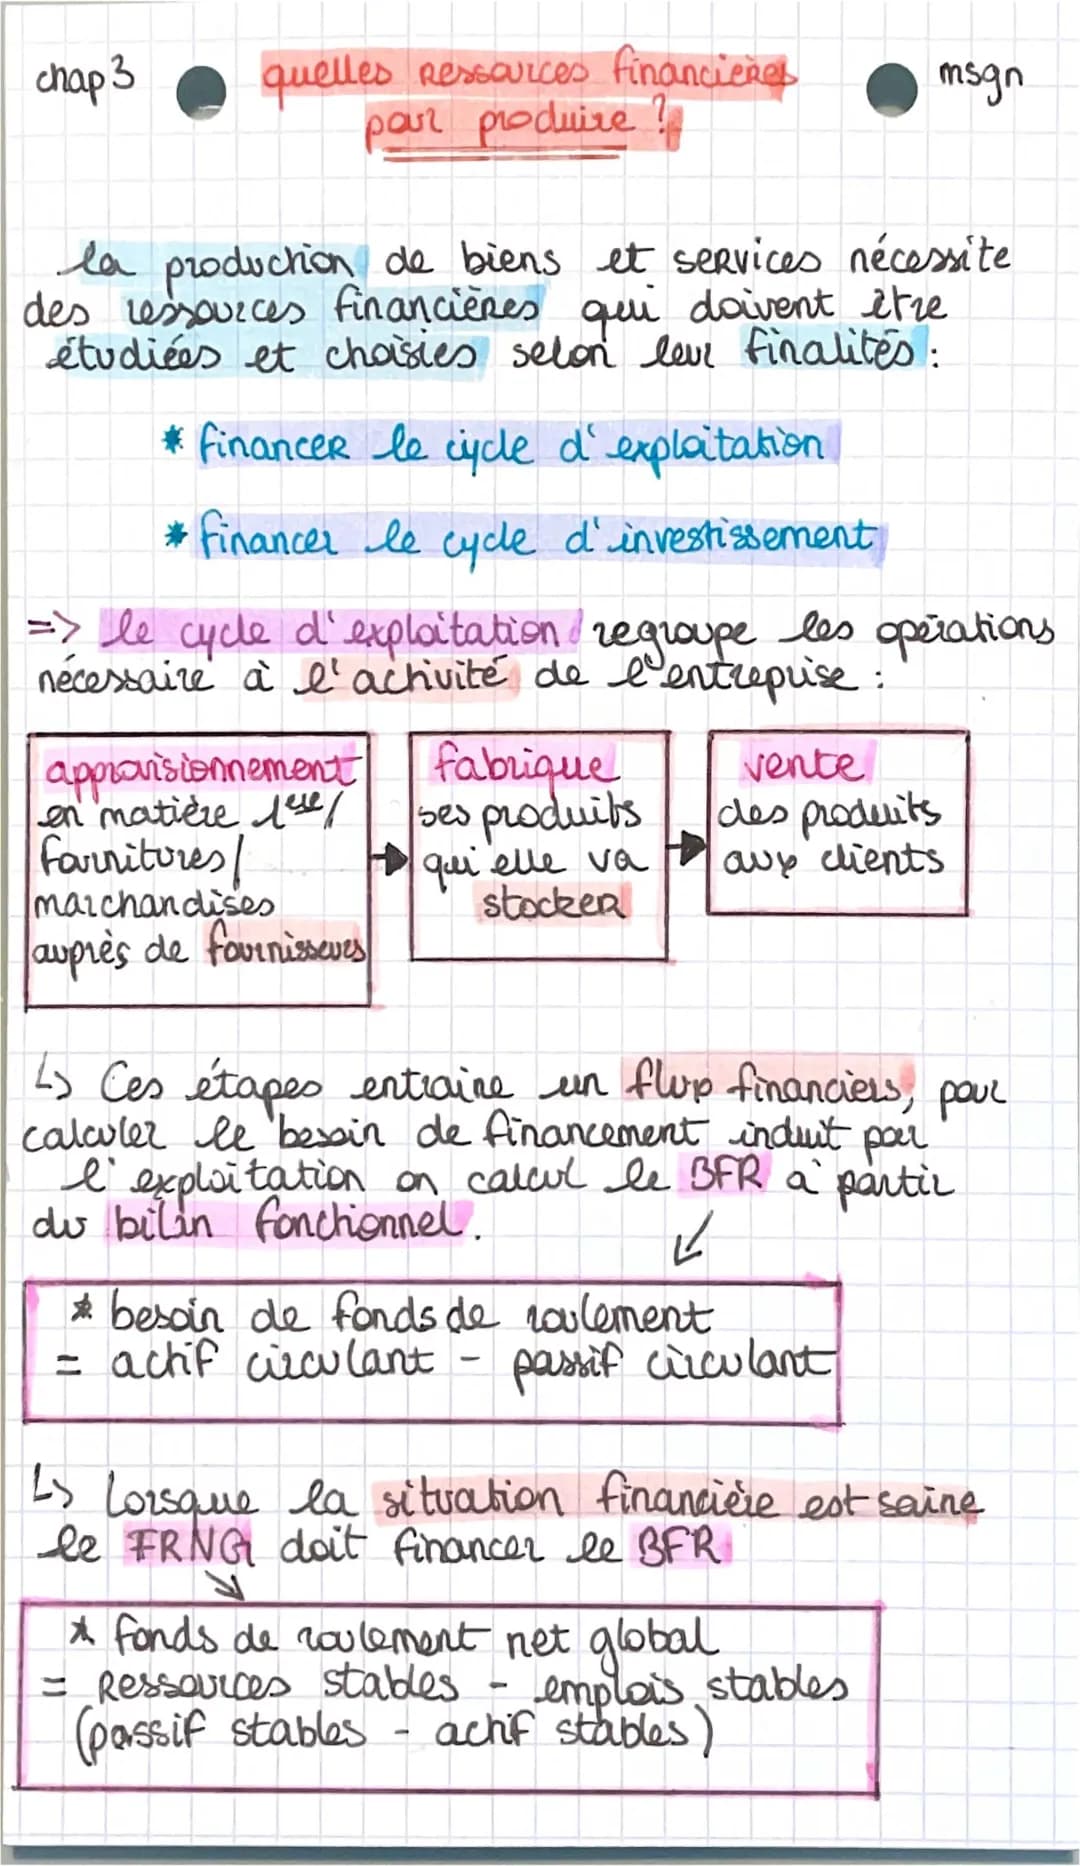 chap 3
quelles ressources financières
pour produire ?
msgn
la production de biens et services nécessite
des ressources financières qui doivent être
étudiées et choisies selon leur finalités :
* financer le cycle d'exploitation
* financer le cycle d'investissement
=> le cycle d'exploitation regroupe les opérations
nécessaire à l'activité de l'entreprise :
approvisionnement
en matière 1ere/
fournitures/
marchandises
auprès de fournisseurs
fabrique
ses produits
qu'elle va
stocker
vente
des produits
aux clients
↳ Ces étapes entraine un flux financiers, pour
calculer le besoin de financement induit par
l'exploitation on calcul le BFR à partir
du bilan fonctionnel.
* besoin de fonds de roulement
= actif circulant - passif circulant
↳ Lorsque la situation financière est saine
le FRNG doit financer le BFR
* fonds de roulement net global
= Ressources stables - emplois stables
(passif stables - actif stables)